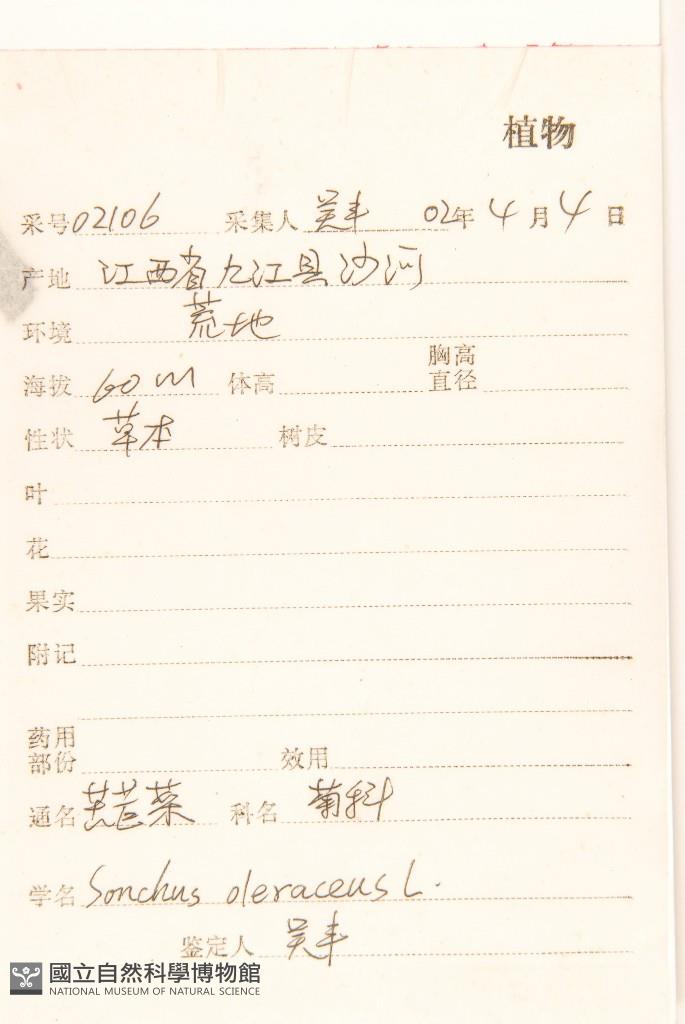 植物
采号 02106 采集人 吴丰 02年 4 月 4 日
产地 江西省九江县沙河
环境 荒地
海拔 60 m 体高 胸高直径
性状 草本 树皮
叶
花
果实
附记
药用部份 效用
通名 苦苣菜 科名 菊科
学名 Sonchus oleraceus L.
鉴定人 吴丰
國立自然科學博物館
NATIONAL MUSEUM OF NATURAL SCIENCE